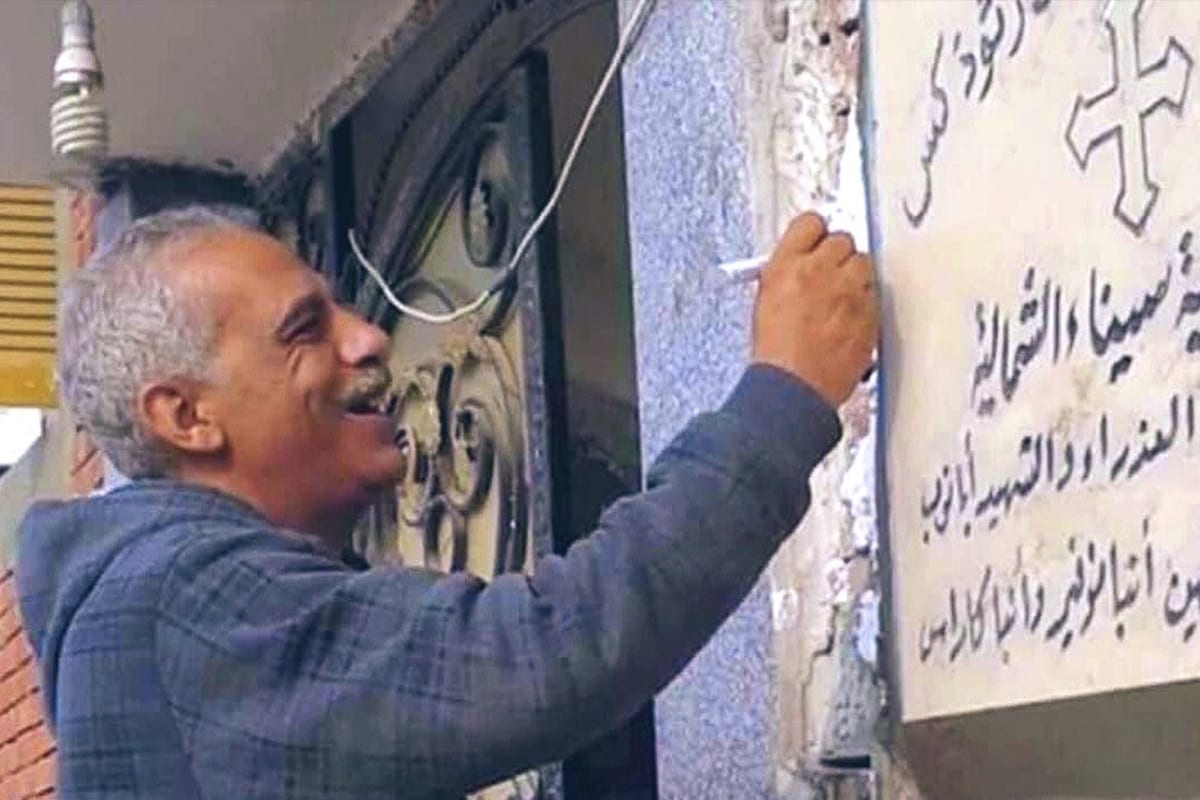 رثوذكس
ية سيناء الشمالية
العذراء والشهيد أبانوب
ين أنبا نوفير وأنبا كاراس